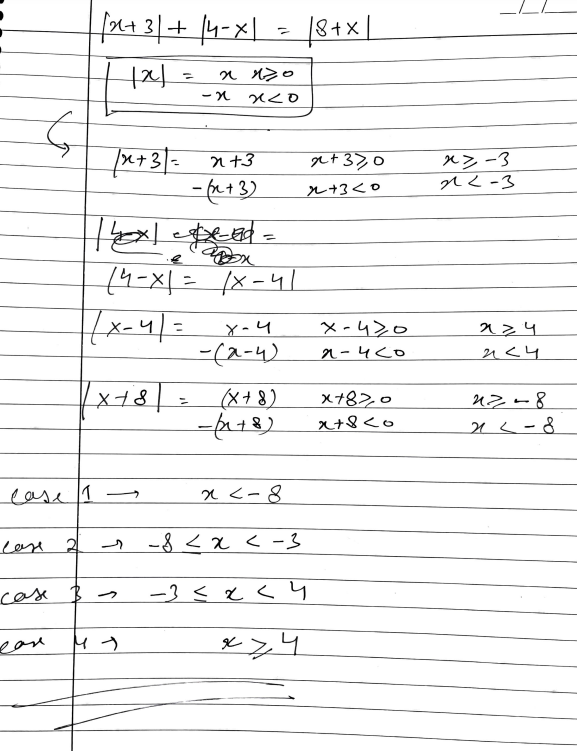 |x+3| + |4-x| = |8+x|
|x| = x x≥0
-x x<0
|x+3| = x+3 x+3≥0 x≥-3
-(x+3) x+3<0 x<-3
|4-x| = |x-4|
|x-4| = x-4 x-4≥0 x≥4
-(x-4) x-4<0 x<4
|x+8| = (x+8) x+8≥0 x≥-8
-(x+8) x+8<0 x<-8
case 1 → x<-8
case 2 → -8≤x<-3
case 3 → -3≤x<4
case 4 → x≥4